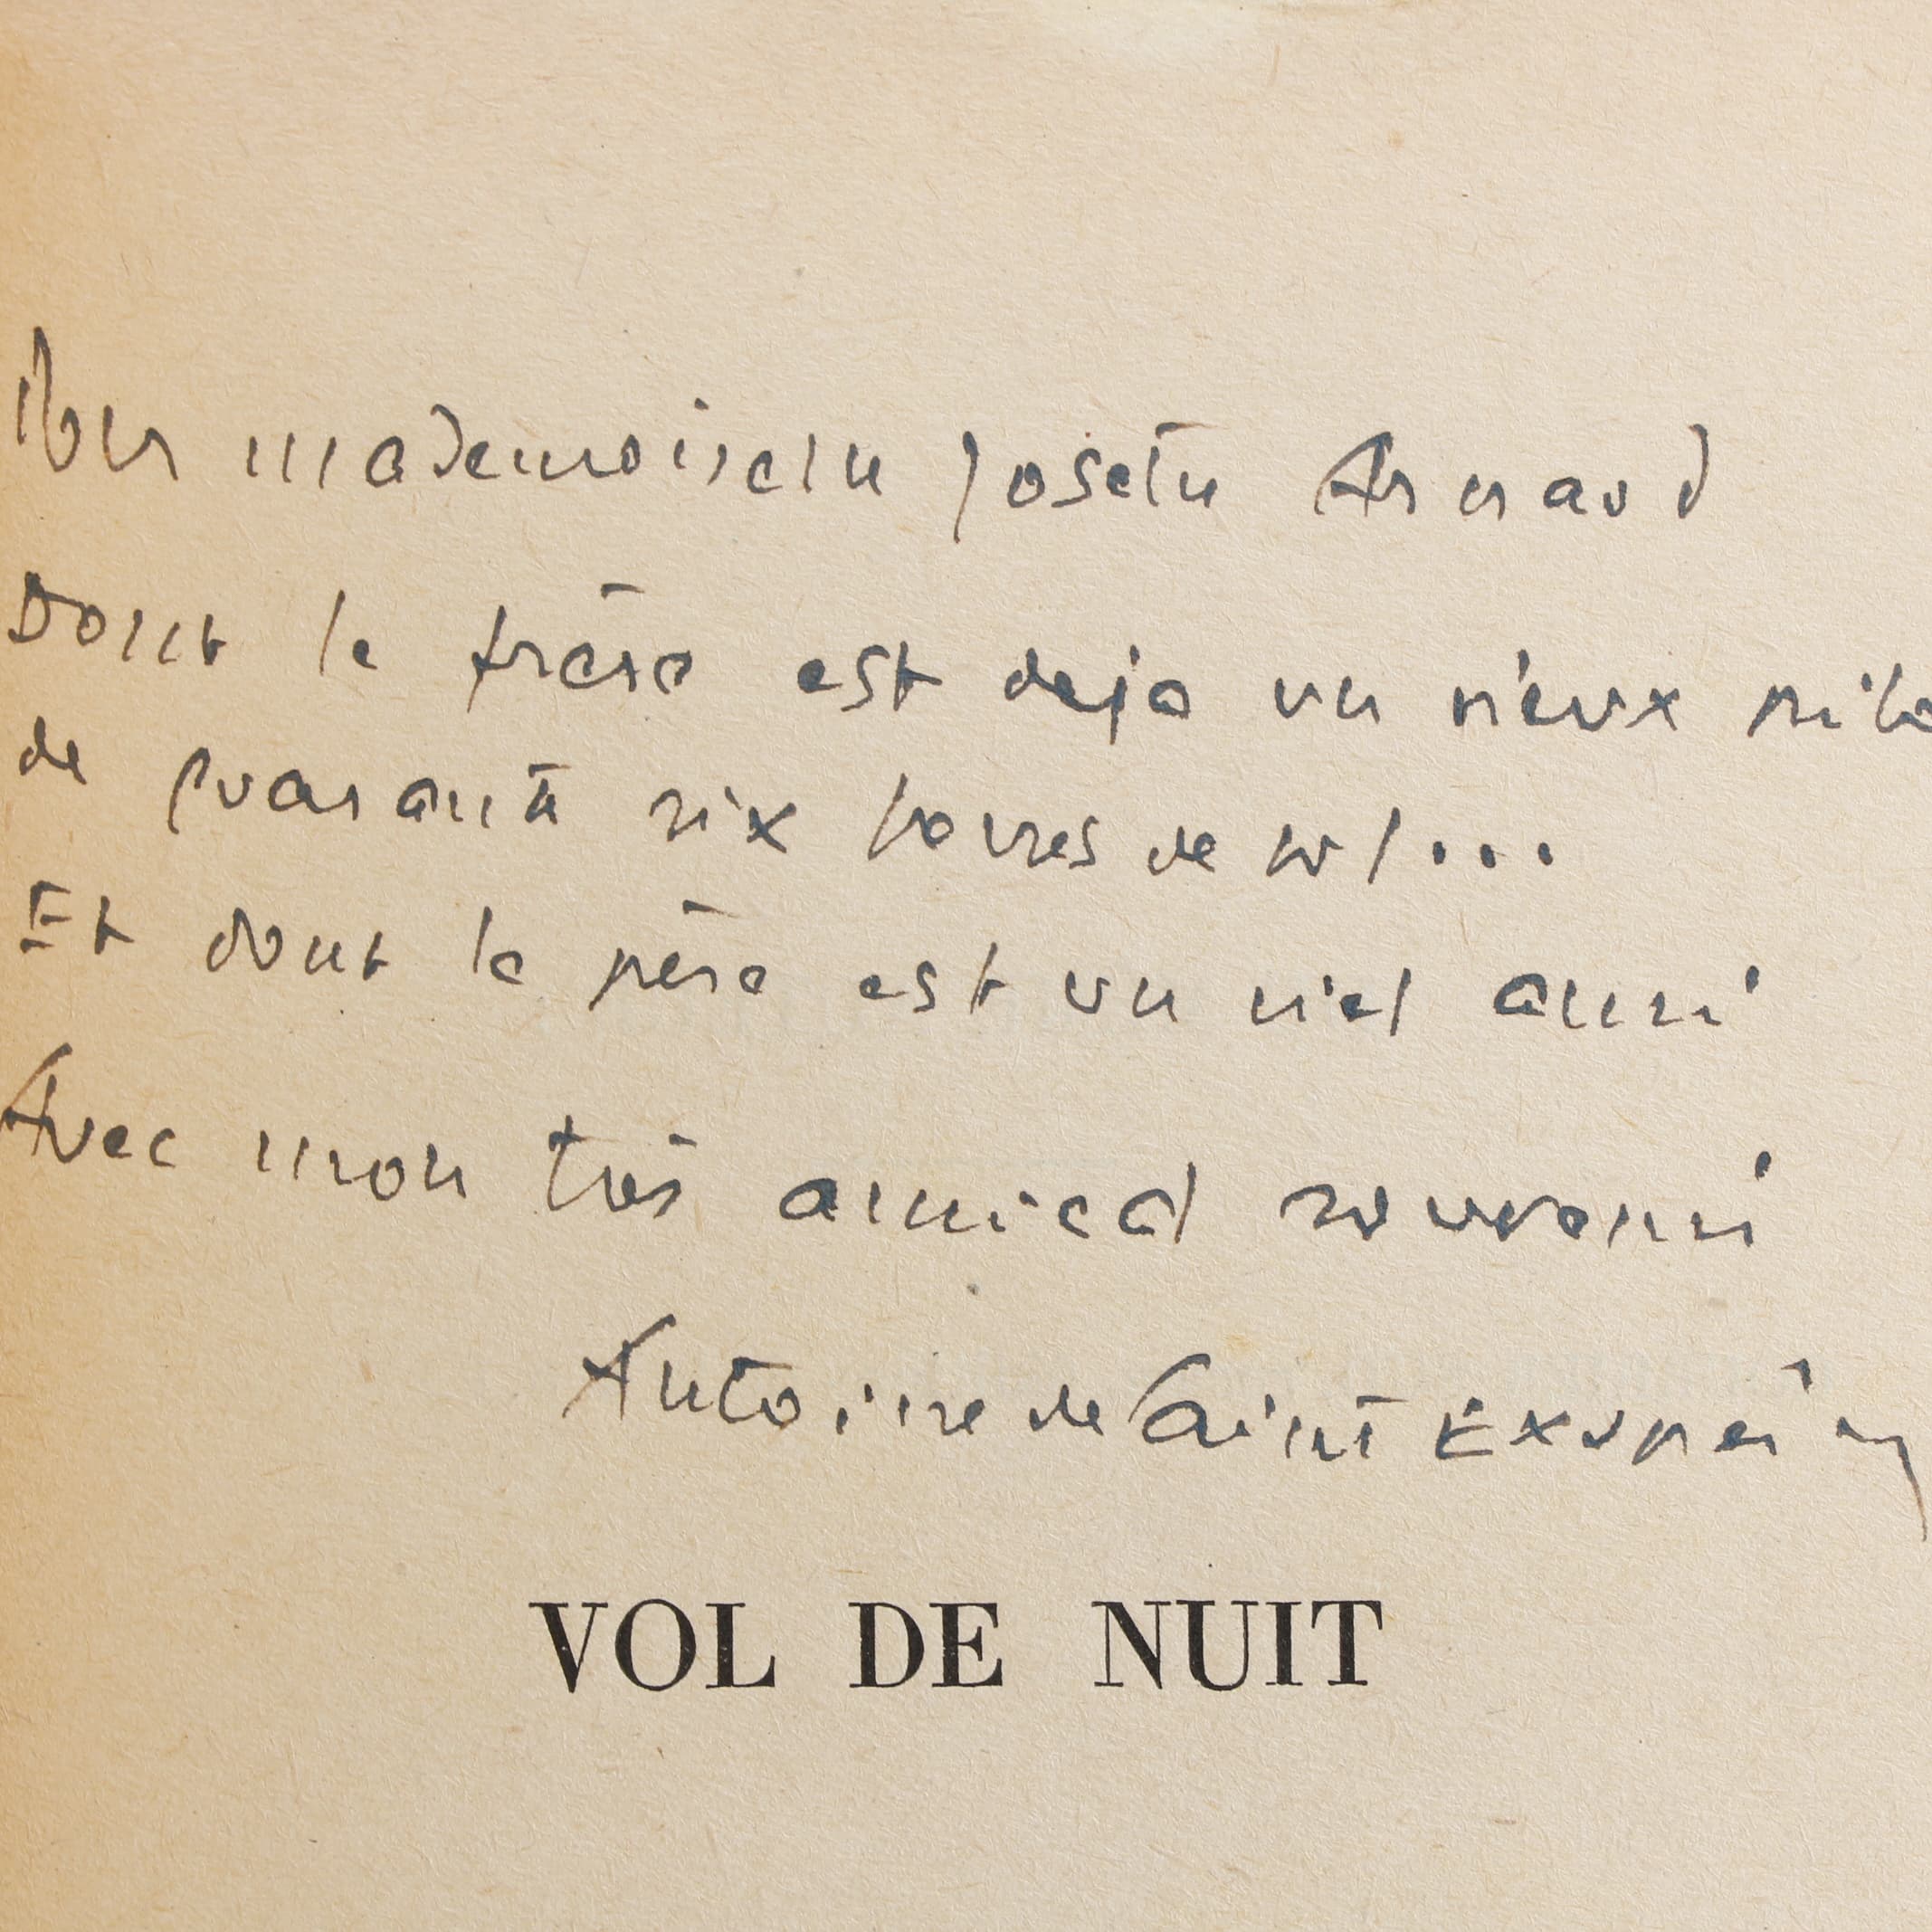 Pour mademoiselle Josette Arnaud
Dont le frère est deja un vieux pilo
de quarante six heures de vol...
Et dont le père est un viel ami
Avec mon très amical souvenir
Antoine de Saint Exupéry
VOL DE NUIT